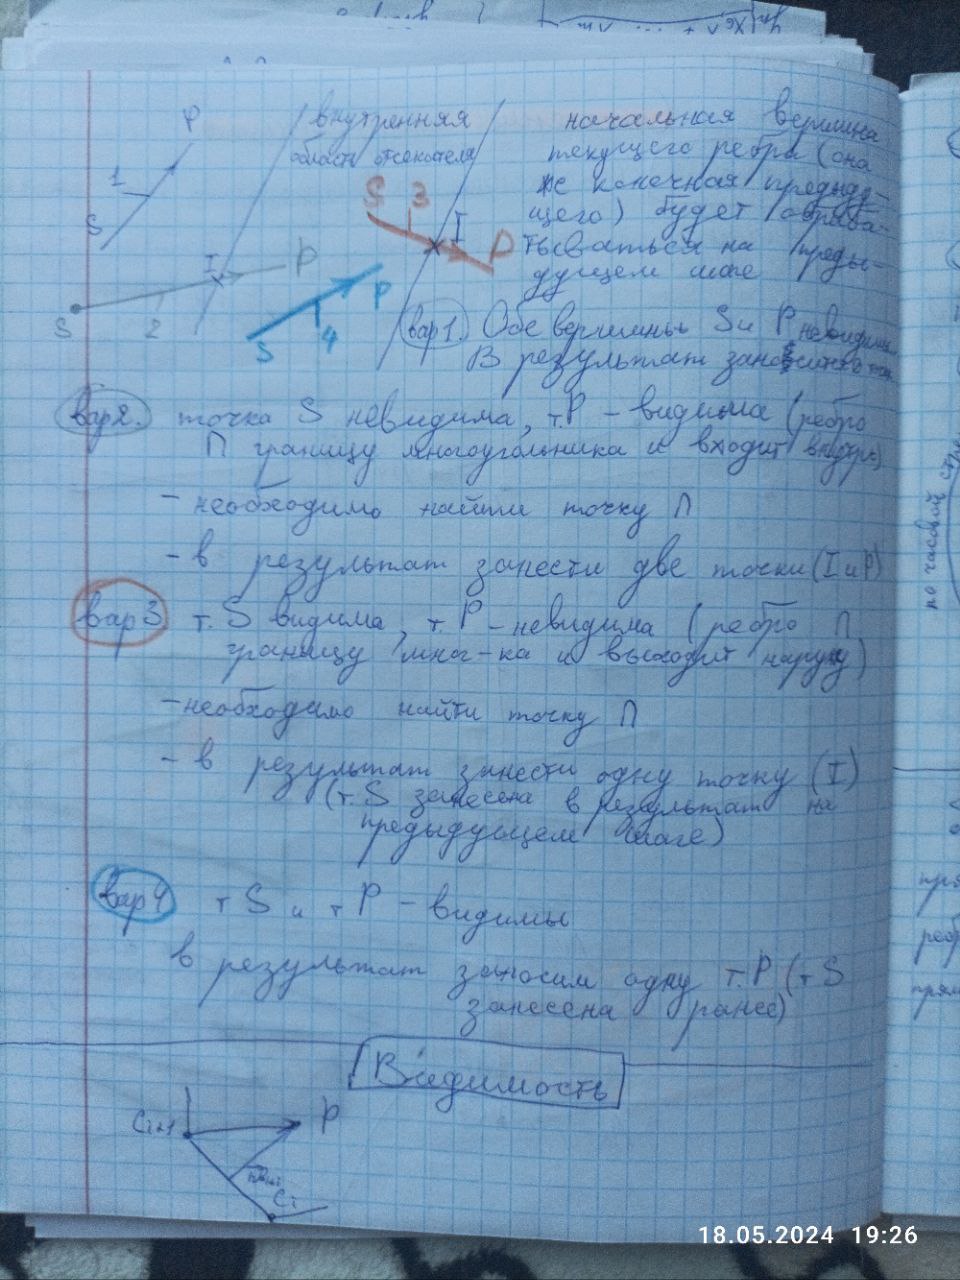 P
1
S
внутренняя
область отсекателя
начальная вершина
текущего ребра (она
же конечная преды-
щего) будет обраба-
тываться на преды-
дущем шаге
S 3
I
P
I
P
S
2
P
S
4
вар1. Обе вершины S и P невидимы
В результат
вар2. точка S невидима, т.P - видима (ребро
П границу многоугольника и входит внутрь)
- необходимо найти точку П
- в результат занести две точки (I и P)
вар 3 т. S видима, т. P - невидима (ребро П
границу мног-ка и выходит наружу)
- необходимо найти точку П
- в результат занести одну точку (I)
(т. S занесена в результат на
предыдущем шаге)
вар 4 т S и т P - видимы
в результат заносим одну т. P (т S
занесена ранее)
Видимость
Ci+1
P
Ci
по часовой
18.05.2024 19:26